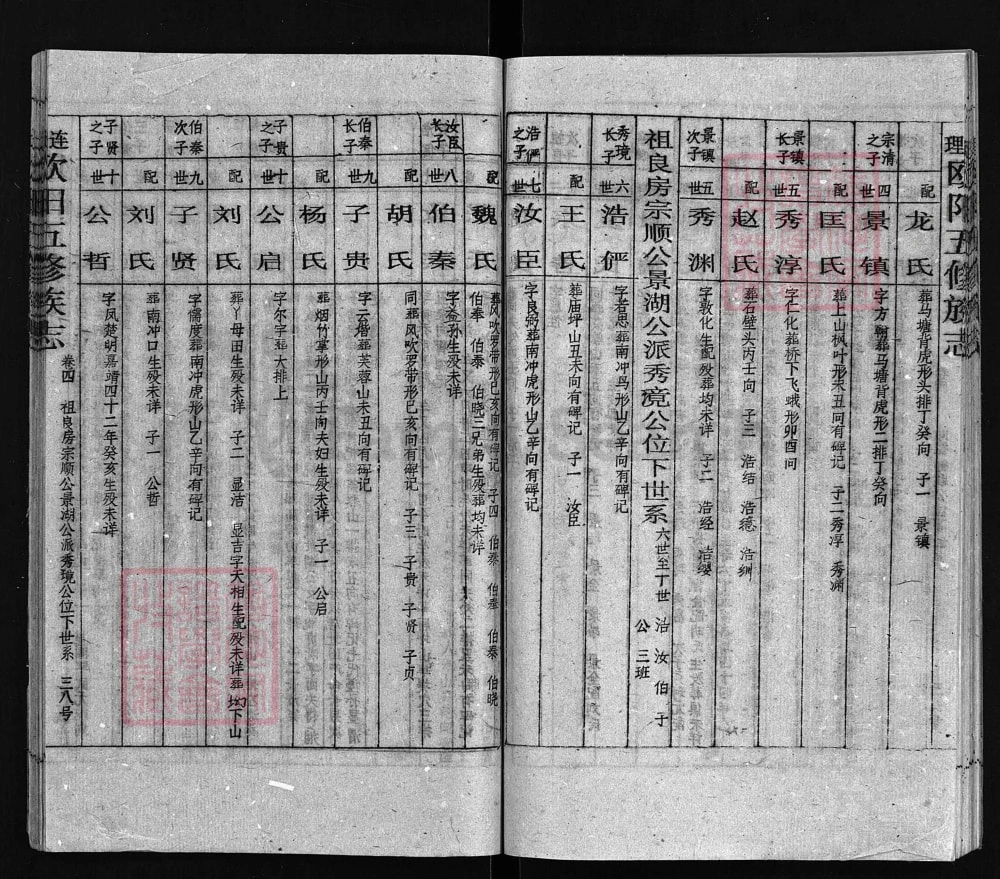 理欧阳五修族志
配 龙氏 葬马塘背虎形头排丁癸向 子一 景镇
宗清之子 四世 景镇 字方翰葬马塘背虎形二排丁癸向
配 匡氏 葬上山枫叶形未丑同有碑记 子二秀淳 秀渊
景镇长子 五世 秀淳 字仁化葬桥下飞蛾形卯酉向
配 赵氏 葬石壁头丙壬向 子三 浩结 浩德 浩绸
景镇次子 五世 秀渊 字敦化生配殁葬均未详 子二 浩经 浩缨
祖良房宗顺公景湖公派秀竟公位下世系 六世至十世 浩 汝 伯 子 公 三班
秀境长子 六世 浩俨 字若思葬南冲鸟形山乙辛向有碑记
配 王氏 葬庙坪山丑未向有碑记 子一 汝臣
浩俨之子 七世 汝臣 字良弼葬南冲虎形山乙辛向有碑记
配 魏氏 葬风吹罗带形巳亥向有碑记 子四 伯泰 伯泰 伯泰 伯晓
伯泰 伯泰 伯晓三兄弟生殁葬均未详
汝臣长子 八世 伯秦 字斋孙生殁未详
胡氏 同葬风吹罗带形巳亥向有碑记 子三 子贵 子贤 子贞
伯泰长子 九世 子贵 字云偕葬芙蓉山未丑向有碑记
配 杨氏 葬烟竹掌形山丙壬向夫妇生殁未详 子一 公启
子贵之子 十世 公启 字尔宇葬大排上
配 刘氏 葬丫母田生殁未详 子二 显洁 显吉字天相生配殁未详葬坳下山
伯泰次子 九世 子贤 字儒度葬南冲虎形山乙辛向有碑记
配 刘氏 葬南冲口生殁未详 子一 公哲
子贤之子 十世 公哲 字凤楚明嘉靖四十二年癸亥生殁未详
涟钦田五修族志 卷四 祖良房宗顺公景湖公派秀境公位下世系 三八号